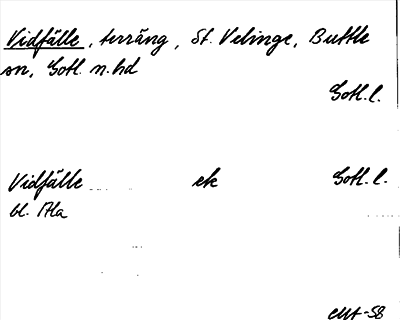 Vidfälle, terräng, St. Velinge, Buttle
sn, Gotl. n. hd
Gotl. l.
Vidfälle ek Gotl. l.
bl. 17la